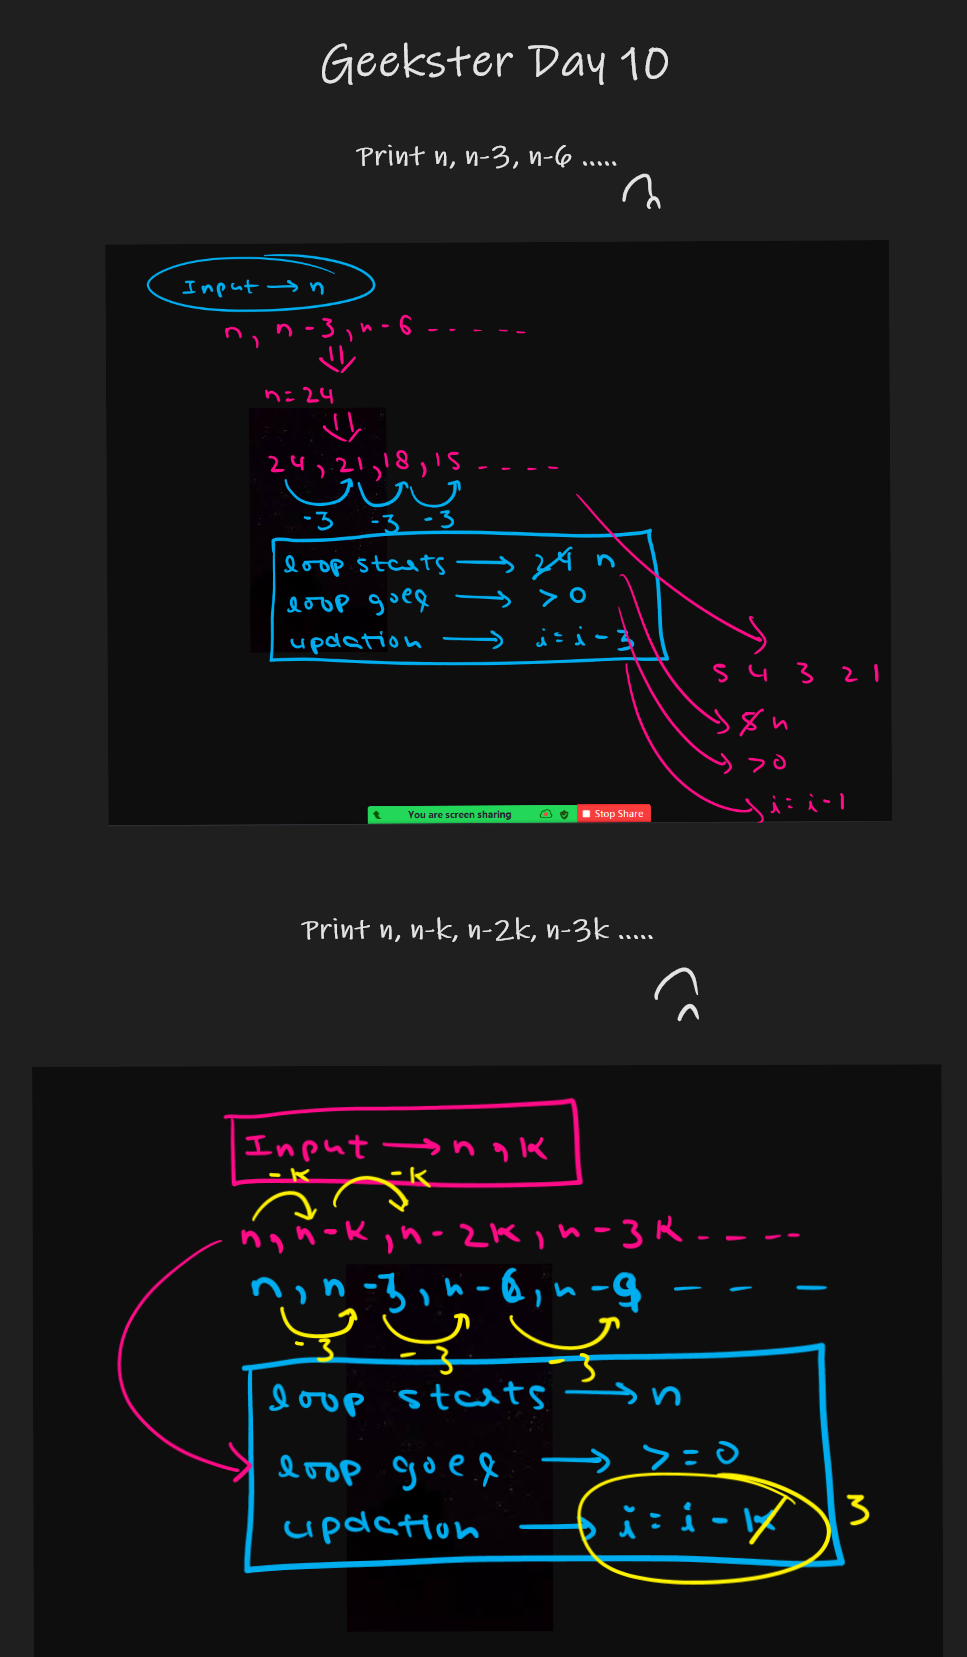 Geekster Day 10
Print n, n-3, n-6 .....
Input → n
n, n-3, n-6 - - - - -
n=24
24, 21, 18, 15 - - - -
-3 -3 -3
loop starts → 24 n
loop goes → > 0
updation → i = i - 3
5 4 3 2 1
5 n
>0
i = i-1
You are screen sharing Stop Share
Print n, n-k, n-2k, n-3k .....
Input → n, k
-k -k
n, n-k, n-2k, n-3k - - - -
n, n-3, n-6, n-9 - - -
-3 -3 -3
loop starts → n
loop goes → >=0
updation → i = i - k 3